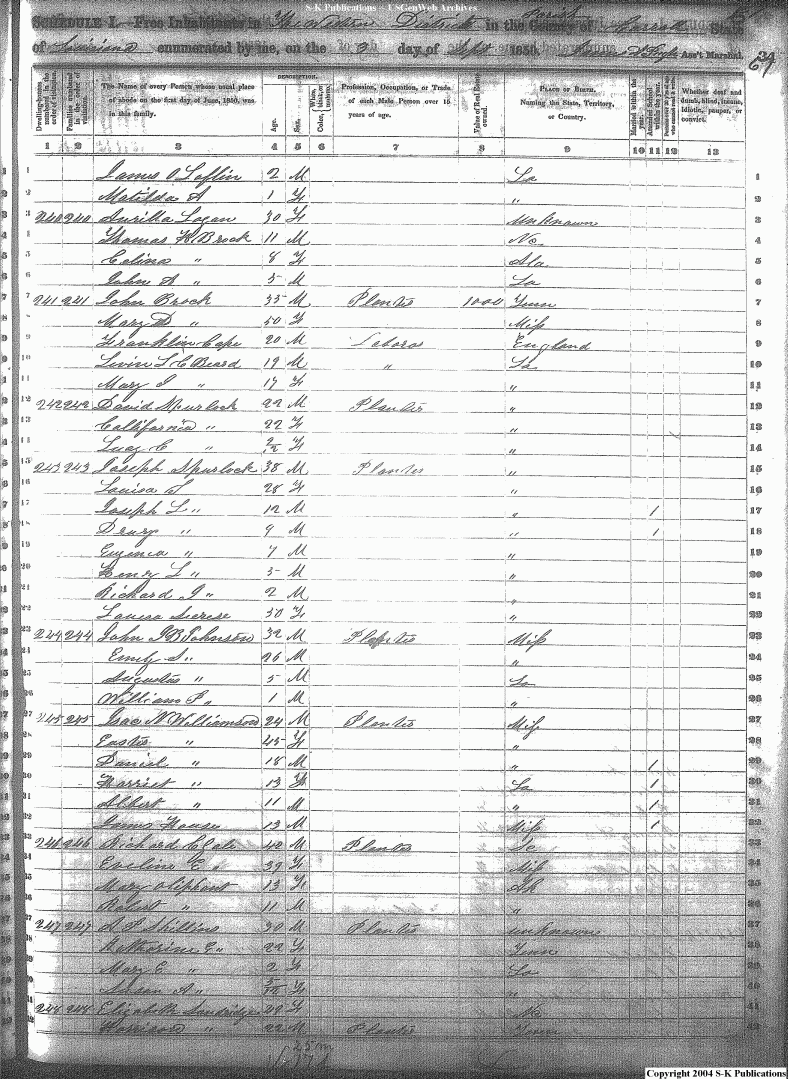 S-K Publications - USGenWeb Archives
SCHEDULE I.—Free Inhabitants in The Western District in the Parish County of Carroll State
of Louisiana enumerated by me, on the day of Sept 1850. Ass't Marshal. 69
Dwelling-houses numbered in the order of visitation.
Families numbered in the order of visitation.
The Name of every Person whose usual place of abode on the first day of June, 1850, was in this family.
DESCRIPTION.
Age.
Sex.
Color, White, black, or mulatto.
Profession, Occupation, or Trade of each Male Person over 15 years of age.
Value of Real Estate owned.
PLACE OF BIRTH. Naming the State, Territory, or Country.
Married within the year.
Attended School within the year.
Whether deaf and dumb, blind, insane, idiotic, pauper, or convict.
1 2 3 4 5 6 7 8 9 10 11 12 13
1 James O Loflin 2 M La 1
2 Matilda A 1 F " 2
3 240 240 Surilla Logan 30 F Unknown 3
4 Thomas H Brock 11 M 4
5 Celina " 8 F Ala 5
6 John A " 5 M La 6
7 241 241 John Brock 35 M Planter 1000 Tenn 7
8 Mary D " 50 F Miss 8
9 Franklin Cape 20 M Labora England 9
10 Levin L C Beard 19 M " La 10
11 Mary J " 17 F " 11
12 242 242 David Spurlock 22 M Planter " 12
13 California " 22 F " 13
14 Lucy C " 2/12 F " 14
15 243 243 Joseph Spurlock 38 M Planter " 15
16 Louisa J 28 F " 16
17 Joseph L " 12 M " 1 17
18 Drury " 9 M " 1 18
19 Eugenea " 7 M " 19
20 Henry L " 5 M " 20
21 Richard J " 2 M " 21
22 Louisa 30 F " 22
23 244 244 John J B Johnson 32 M Planter Miss 23
24 Emily S " 26 M " 24
25 Augustus " 5 M La 25
26 William P " 1 M " 26
27 245 245 Isac N Williamson 24 M Planter Miss 27
28 Easter " 45 F " 28
29 Daniel " 18 M " 1 29
30 Harriet " 13 F La 1 30
31 Albert " 11 M " 1 31
32 James House 13 M Miss 1 32
33 246 246 Richard C 42 M Planter 33
34 Eveline E " 39 F Miss 34
35 Mary Oliphant 13 F 35
36 Robert " 11 M " 36
37 247 247 30 M Planter unknown 37
38 Katharine E " 22 F Tenn 38
39 Mary E " 2 F La 39
40 Susan A " F " 40
41 248 248 Elizabeth Sandridge 29 F 41
42 Harrison " 22 M Planter Tenn 42
Copyright 2004 S-K Publications